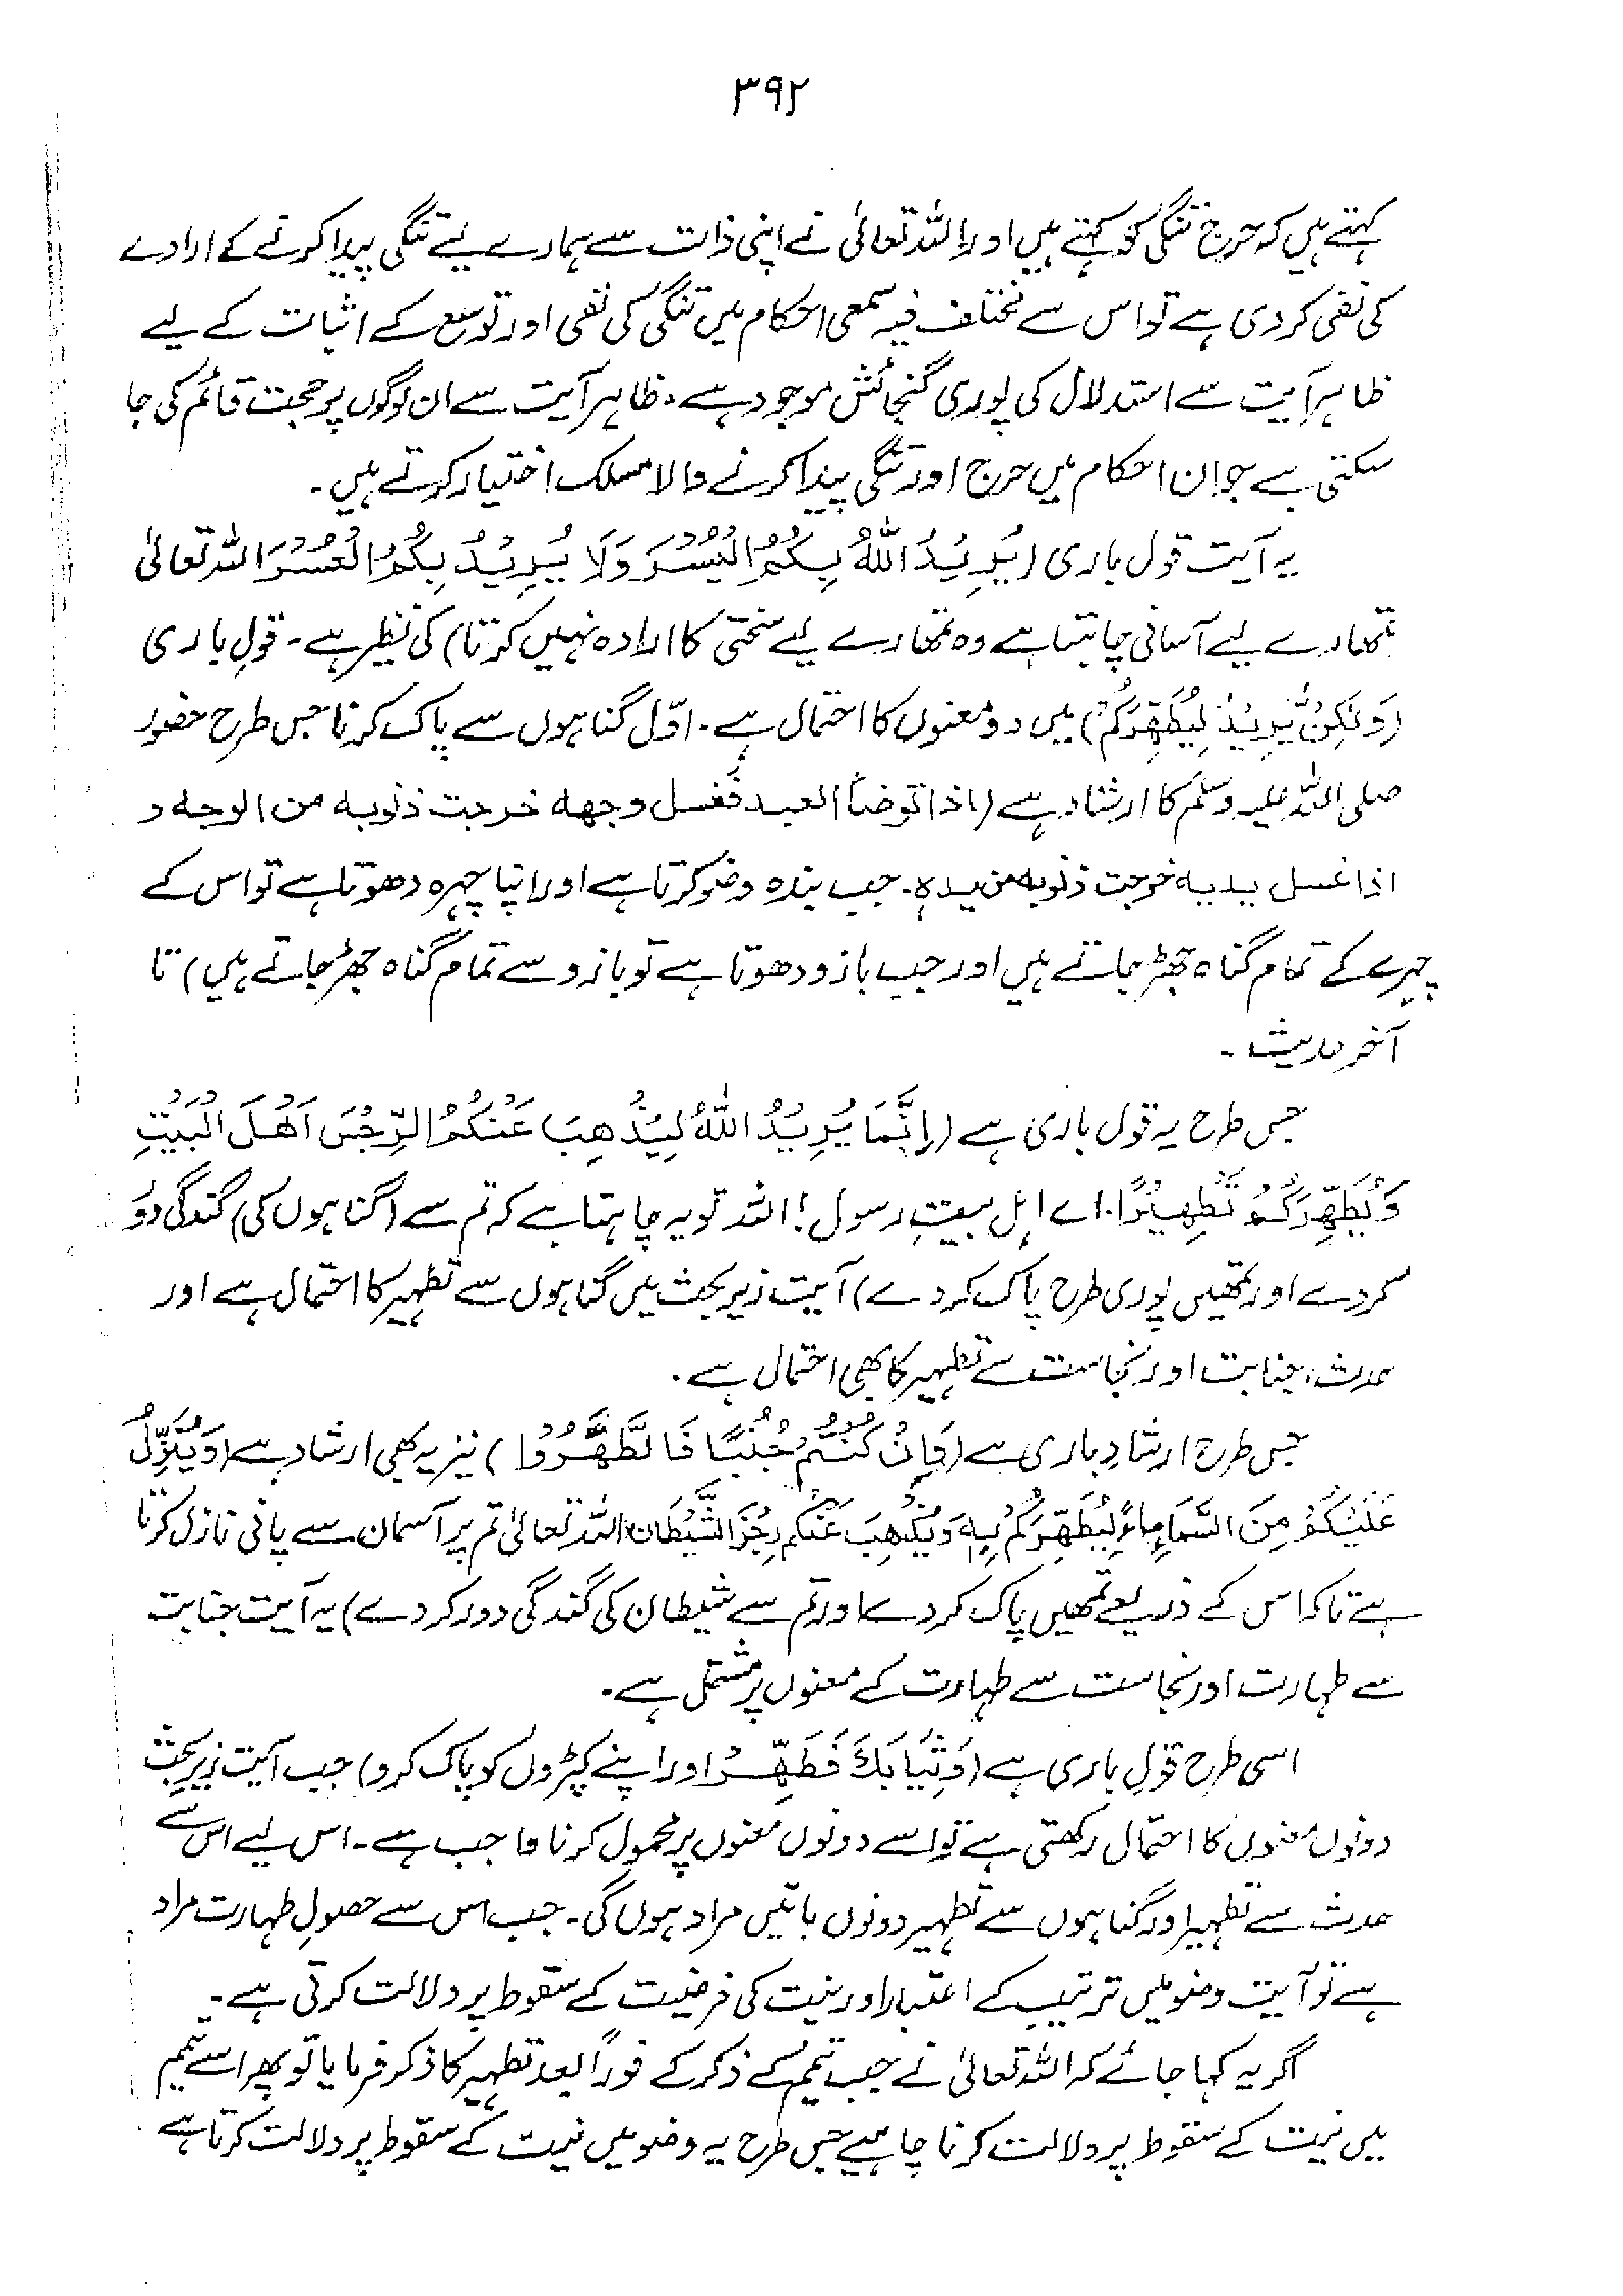 ۳۹۲
کہتے ہیں کہ حرج تنگی کو کہتے ہیں اور اللہ تعالیٰ نے اپنی ذات سے ہمارے لیے تنگی پیدا کرنے کے ارادے
کی نفی کر دی ہے تو اس سے مختلف فیہ سمعی احکام میں تنگی کی نفی اور توسع کے اثبات کے لیے
ظاہر آیت سے استدلال کی پوری گنجائش موجود ہے۔ ظاہر آیت سے ان لوگوں پر حجت قائم کی جا
سکتی ہے جو ان احکام میں حرج اور تنگی پیدا کرنے والا مسلک اختیار کرتے ہیں۔
یہ آیت قول باری (یُرِیْدُ اللّٰهُ بِکُمُ الْیُسْرَ وَلَا یُرِیْدُ بِکُمُ الْعُسْرَ اللہ تعالیٰ
تمھارے لیے آسانی چاہتا ہے وہ تمھارے لیے سختی کا ارادہ نہیں کرتا) کی نظیر ہے۔ قولِ باری
(وَلٰکِنْ یُّرِیْدُ لِیُطَهِّرَکُمْ) میں دو معنوں کا احتمال ہے۔ اوّل گناہوں سے پاک کرنا جس طرح حضور
صلی اللہ علیہ وسلم کا ارشاد ہے (اذا توضأ العبد فغسل وجهه خرجت ذنوبه من الوجه و
اذا غسل یدیه خرجت ذنوبه من یدہ۔ جب بندہ وضو کرتا ہے اور اپنا چہرہ دھوتا ہے تو اس کے
چہرے کے تمام گناہ جھڑ جاتے ہیں اور جب بازو دھوتا ہے تو بازو سے تمام گناہ جھڑ جاتے ہیں) تا
آخر حدیث۔
جس طرح یہ قول باری ہے (اِنَّمَا یُرِیْدُ اللّٰهُ لِیُذْهِبَ عَنْکُمُ الرِّجْسَ اَهْلَ الْبَیْتِ
وَیُطَهِّرَکُمْ تَطْهِیْرًا۔ اے اہل بیتِ رسول! اللہ تو یہ چاہتا ہے کہ تم سے (گناہوں کی) گندگی دُو
کر دے اور تمھیں پوری طرح پاک کر دے) آیت زیر بحث میں گناہوں سے تطہیر کا احتمال ہے اور
حدث، جنابت اور نجاست سے تطہیر کا بھی احتمال ہے۔
جس طرح ارشادِ باری ہے (وَاِنْ کُنْتُمْ جُنُبًا فَاطَّهَّرُوْا) نیز یہ بھی ارشاد ہے (وَیُنَزِّلُ
عَلَیْکُمْ مِنَ السَّمَاءِ مَاءً لِیُطَهِّرَکُمْ بِهٖ وَیُذْهِبَ عَنْکُمْ رِجْزَ الشَّیْطَان اللہ تعالیٰ تم پر آسمان سے پانی نازل کرتا
ہے تاکہ اس کے ذریعے تمھیں پاک کر دے اور تم سے شیطان کی گندگی دور کر دے) یہ آیت جنابت
سے طہارت اور نجاست سے طہارت کے معنوں پر مشتمل ہے۔
اسی طرح قولِ باری ہے (وَثِیَابَكَ فَطَهِّرْ اور اپنے کپڑوں کو پاک کرو) جب آیت زیر بحث
دونوں معنوں کا احتمال رکھتی ہے تو اسے دونوں معنوں پر محمول کرنا واجب ہے۔ اس لیے اس سے
حدث سے تطہیر اور گناہوں سے تطہیر دونوں باتیں مراد ہوں گی۔ جب اس سے حصولِ طہارت مراد
ہے تو آیت وضو میں ترتیب کے اعتبار اور نیت کی فرضیت کے سقوط پر دلالت کرتی ہے۔
اگر یہ کہا جائے کہ اللہ تعالیٰ نے جب تیمم کے ذکر کے فوراً بعد تطہیر کا ذکر فرمایا تو پھر اسے تیمم
میں نیت کے سقوط پر دلالت کرنا چاہیے جس طرح یہ وضو میں نیت کے سقوط پر دلالت کرتا ہے